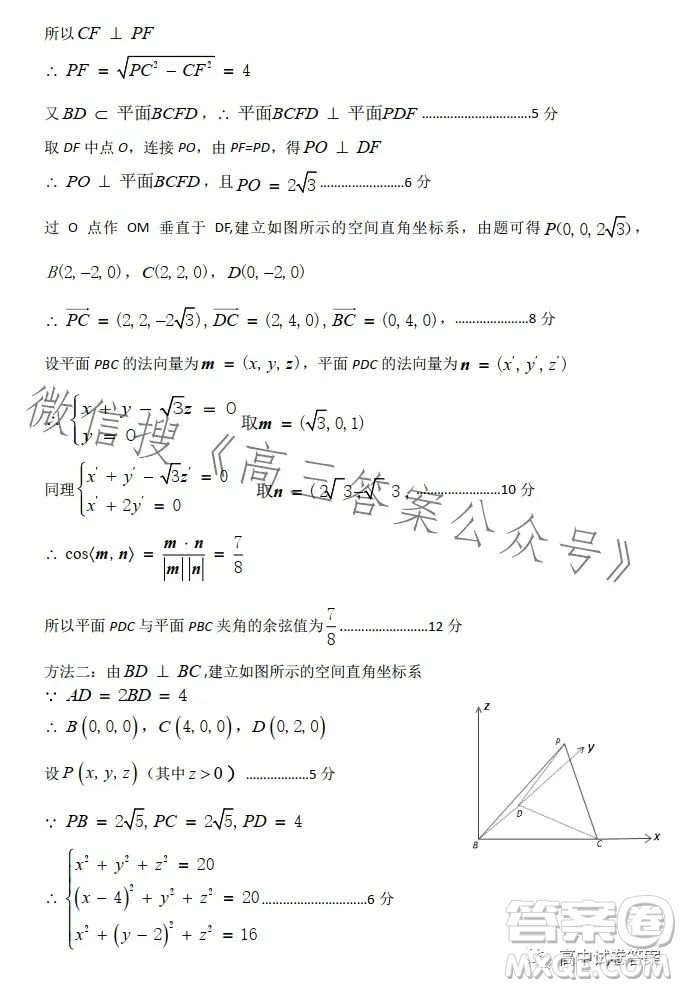 所以CF ⊥ PF
∴ PF = √(PC² − CF²) = 4
又BD ⊂ 平面BCFD，∴ 平面BCFD ⊥ 平面PDF ……………………………5 分
取 DF 中点 O，连接 PO，由 PF=PD，得PO ⊥ DF
∴ PO ⊥ 平面BCFD，且PO = 2√3 ……………………6 分
过 O 点作 OM 垂直于 DF,建立如图所示的空间直角坐标系，由题可得P(0, 0, 2√3)，
B(2, −2, 0)，C(2, 2, 0)，D(0, −2, 0)
∴ PC→ = (2, 2, −2√3), DC→ = (2, 4, 0), BC→ = (0, 4, 0)，…………………8 分
设平面 PBC 的法向量为 m = (x, y, z)，平面 PDC 的法向量为 n = (x′, y′, z′)
∴ {x + y − √3z = 0
y = 0 取m = (√3, 0, 1)
同理{x′ + y′ − √3z′ = 0
x′ + 2y′ = 0 取n = (2√3, −√3, ……………………10 分
∴ cos⟨m, n⟩ = m · n / |m||n| = 7/8
所以平面 PDC 与平面 PBC 夹角的余弦值为 7/8 ……………………12 分
方法二：由 BD ⊥ BC ,建立如图所示的空间直角坐标系
∵ AD = 2BD = 4
∴ B(0, 0, 0)，C(4, 0, 0)，D(0, 2, 0)
设 P(x, y, z)（其中z > 0）………………5 分
∵ PB = 2√5, PC = 2√5, PD = 4
∴ {x² + y² + z² = 20
(x − 4)² + y² + z² = 20 …………………………6 分
x² + (y − 2)² + z² = 16
z
P
y
D
B
C
x
微信搜《高三答案公众号》
答案卷
高中试卷答案
MXQE.COM